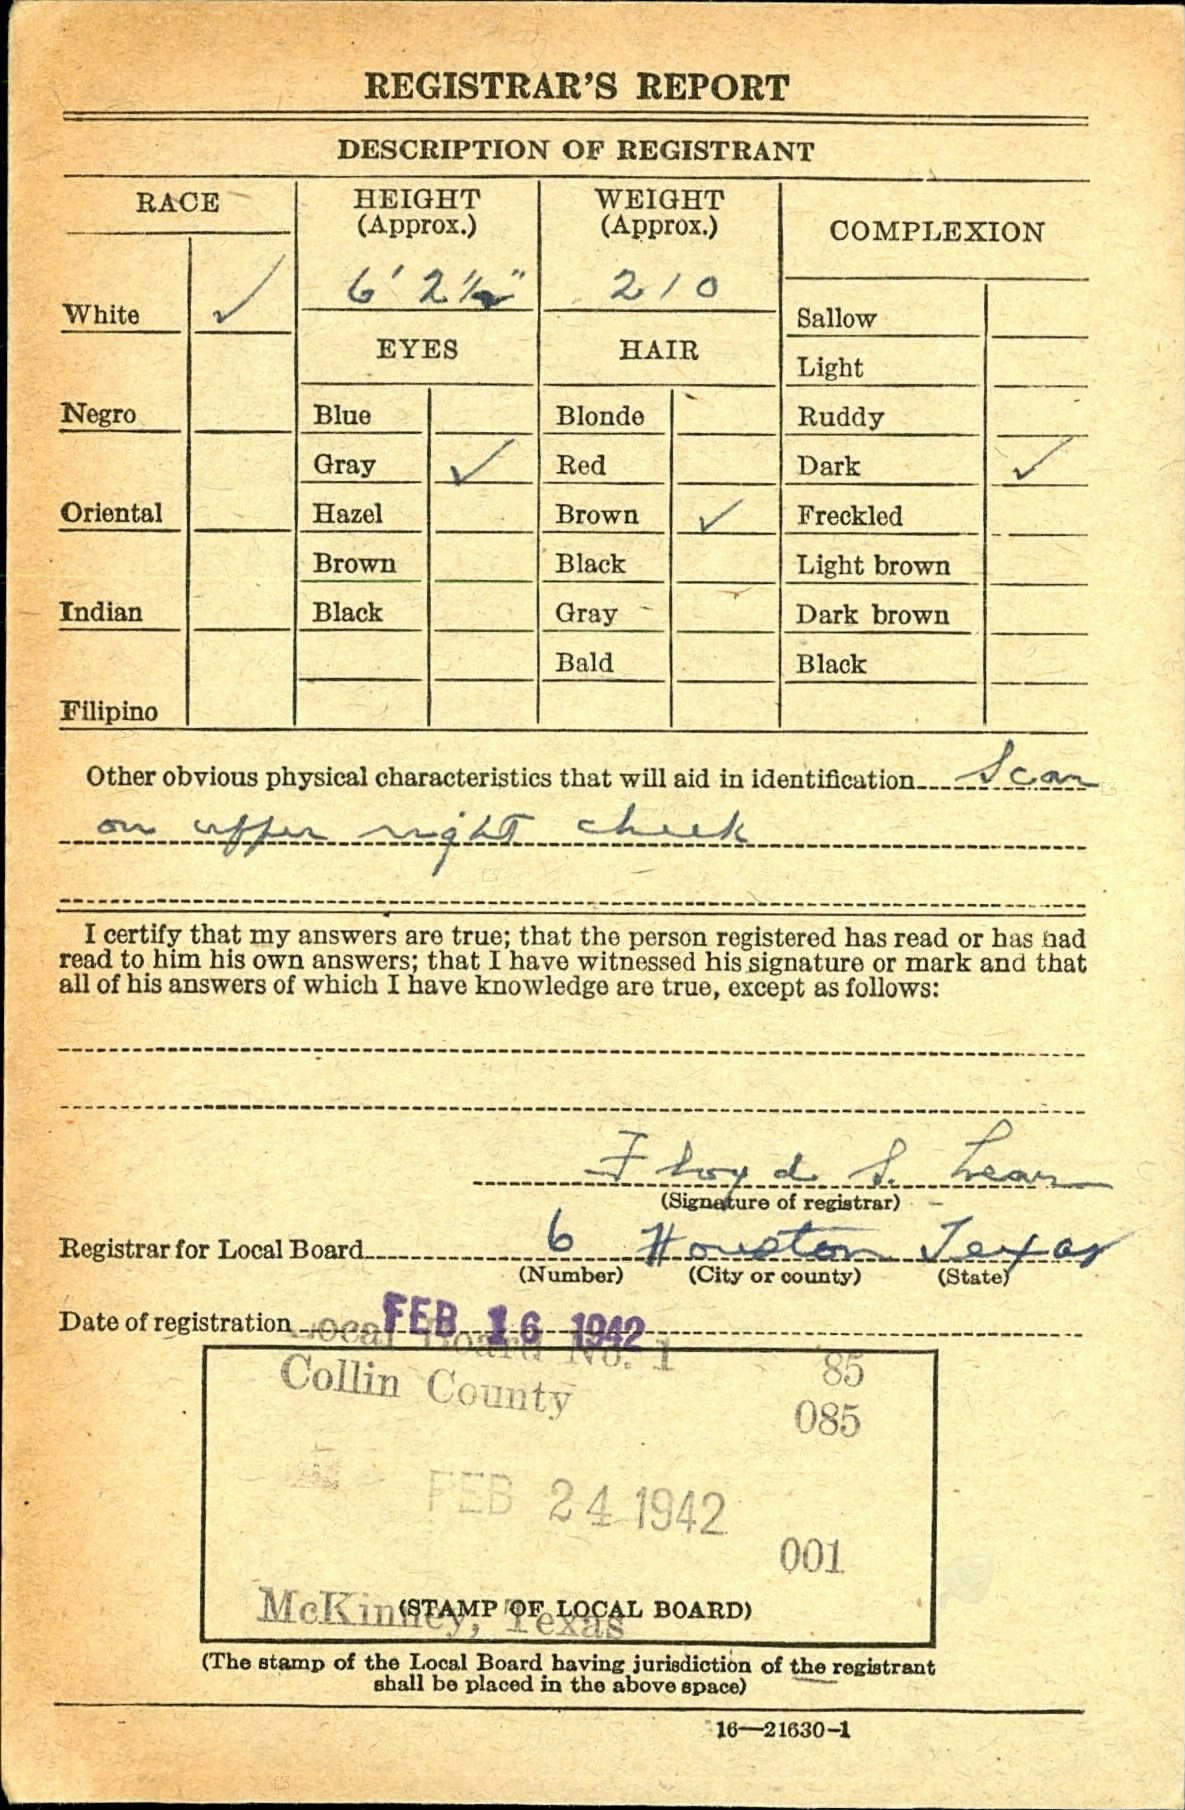 REGISTRAR'S REPORT
DESCRIPTION OF REGISTRANT
RACE
HEIGHT
(Approx.)
WEIGHT
(Approx.)
COMPLEXION
White ✓
6' 2½"
210
Sallow
EYES
HAIR
Light
Negro
Blue
Blonde
Ruddy
Gray ✓
Red
Dark ✓
Oriental
Hazel
Brown ✓
Freckled
Brown
Black
Light brown
Indian
Black
Gray
Dark brown
Bald
Black
Filipino
Other obvious physical characteristics that will aid in identification Scar
on upper right cheek
I certify that my answers are true; that the person registered has read or has had
read to him his own answers; that I have witnessed his signature or mark and that
all of his answers of which I have knowledge are true, except as follows:
Floyd S.
(Signature of registrar)
Registrar for Local Board 6 Houston Texas
(Number) (City or county) (State)
Date of registration FEB 16 1942
Local Board No. 1 85
Collin County 085
FEB 24 1942
001
McKinney, Texas
(STAMP OF LOCAL BOARD)
(The stamp of the Local Board having jurisdiction of the registrant
shall be placed in the above space)
16—21630-1